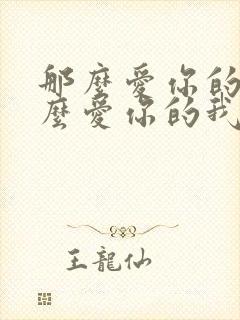 那麼愛你的
麼愛你的我
王龍仙